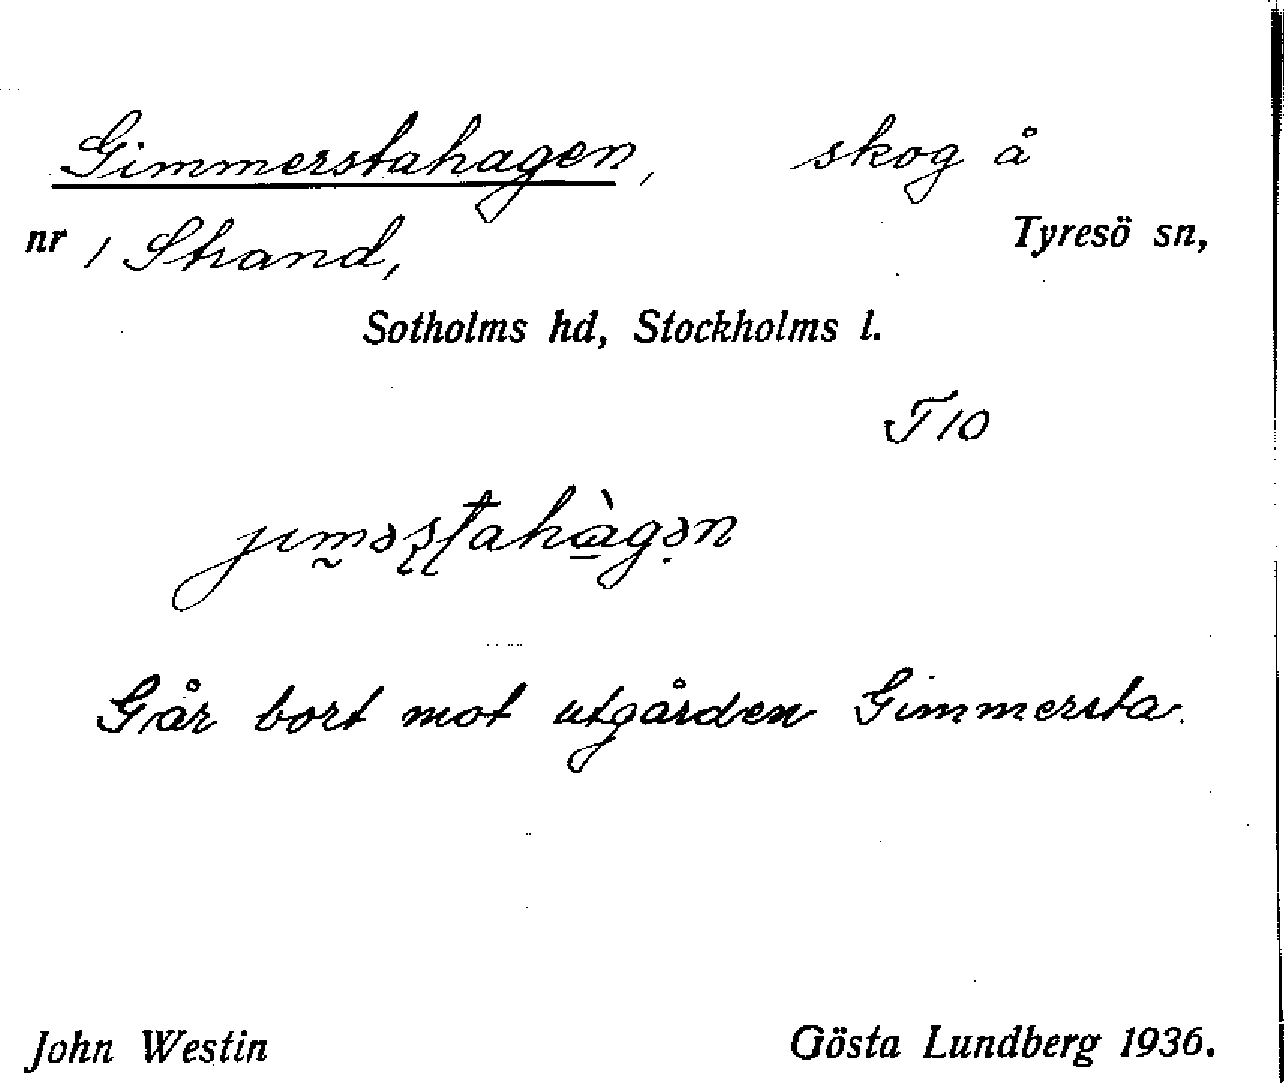 Gimmerstahagen, skog å
nr 1 Strand, Tyresö sn,
Sotholms hd, Stockholms l.
T 10
Går bort mot utgården Gimmersta.
John Westin Gösta Lundberg 1936.